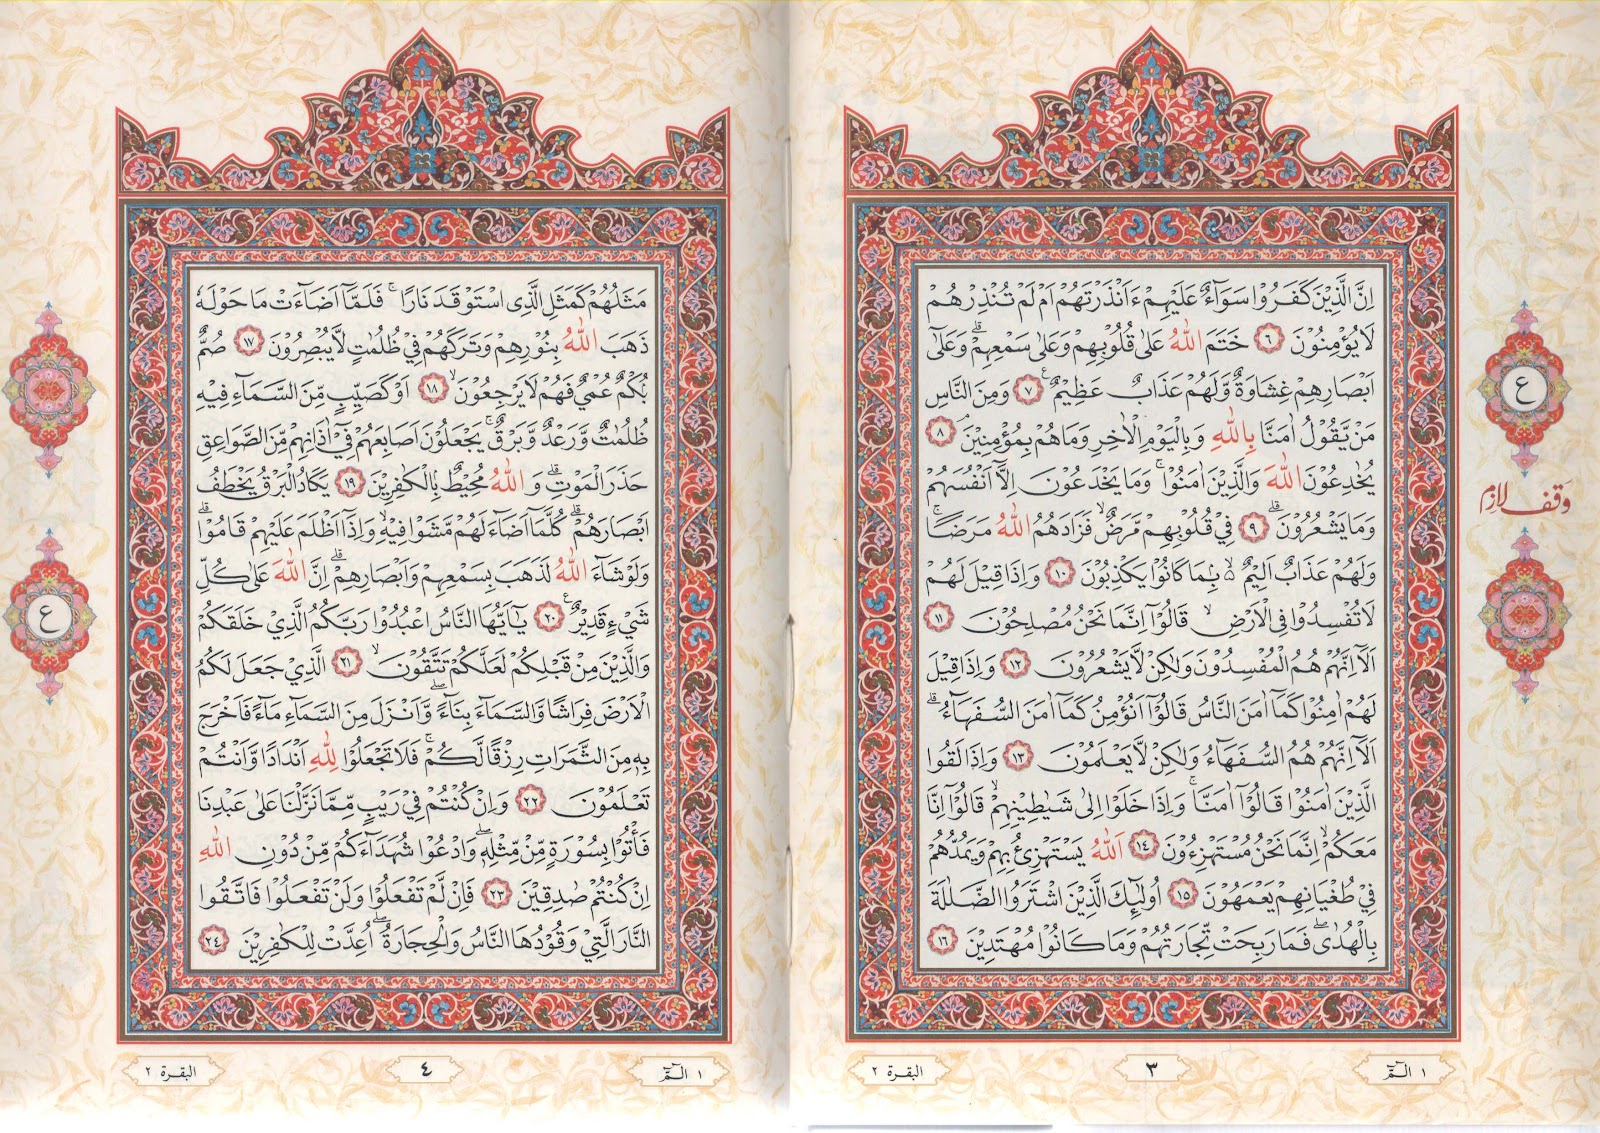 اِنَّ الَّذِيْنَ كَفَرُوْا سَوَآءٌ عَلَيْهِمْ ءَاَنْذَرْتَهُمْ اَمْ لَمْ تُنْذِرْهُمْ
لَا يُؤْمِنُوْنَ ٦ خَتَمَ اللّٰهُ عَلٰى قُلُوْبِهِمْ وَعَلٰى سَمْعِهِمْ ۗ وَعَلٰٓى
اَبْصَارِهِمْ غِشَاوَةٌ وَّلَهُمْ عَذَابٌ عَظِيْمٌ ٧ ع وَمِنَ النَّاسِ
مَنْ يَّقُوْلُ اٰمَنَّا بِاللّٰهِ وَبِالْيَوْمِ الْاٰخِرِ وَمَا هُمْ بِمُؤْمِنِيْنَ ۘ ٨
يُخٰدِعُوْنَ اللّٰهَ وَالَّذِيْنَ اٰمَنُوْا ۚ وَمَا يَخْدَعُوْنَ اِلَّآ اَنْفُسَهُمْ
وَمَا يَشْعُرُوْنَ ۗ ٩ فِيْ قُلُوْبِهِمْ مَّرَضٌ ۙ فَزَادَهُمُ اللّٰهُ مَرَضًا ۚ
وَلَهُمْ عَذَابٌ اَلِيْمٌ ۙ بِۢمَا كَانُوْا يَكْذِبُوْنَ ١٠ وَاِذَا قِيْلَ لَهُمْ
لَا تُفْسِدُوْا فِى الْاَرْضِ ۙ قَالُوْٓا اِنَّمَا نَحْنُ مُصْلِحُوْنَ ١١
اَلَآ اِنَّهُمْ هُمُ الْمُفْسِدُوْنَ وَلٰكِنْ لَّا يَشْعُرُوْنَ ١٢ وَاِذَا قِيْلَ
لَهُمْ اٰمِنُوْا كَمَآ اٰمَنَ النَّاسُ قَالُوْٓا اَنُؤْمِنُ كَمَآ اٰمَنَ السُّفَهَاۤءُ ۗ
اَلَآ اِنَّهُمْ هُمُ السُّفَهَاۤءُ وَلٰكِنْ لَّا يَعْلَمُوْنَ ١٣ وَاِذَا لَقُوا
الَّذِيْنَ اٰمَنُوْا قَالُوْٓا اٰمَنَّا ۚ وَاِذَا خَلَوْا اِلٰى شَيٰطِيْنِهِمْ ۙ قَالُوْٓا اِنَّا
مَعَكُمْ ۙ اِنَّمَا نَحْنُ مُسْتَهْزِءُوْنَ ١٤ اَللّٰهُ يَسْتَهْزِئُ بِهِمْ وَيَمُدُّهُمْ
فِيْ طُغْيَانِهِمْ يَعْمَهُوْنَ ١٥ اُولٰۤىِٕكَ الَّذِيْنَ اشْتَرَوُا الضَّلٰلَةَ
بِالْهُدٰى ۖ فَمَا رَبِحَتْ تِّجَارَتُهُمْ وَمَا كَانُوْا مُهْتَدِيْنَ ١٦
ع
وقف لازم
١ الٓمّٓ
٣
البقرة ٢
مَثَلُهُمْ كَمَثَلِ الَّذِى اسْتَوْقَدَ نَارًا ۚ فَلَمَّآ اَضَاۤءَتْ مَا حَوْلَهٗ
ذَهَبَ اللّٰهُ بِنُوْرِهِمْ وَتَرَكَهُمْ فِيْ ظُلُمٰتٍ لَّا يُبْصِرُوْنَ ١٧ صُمٌّ
بُكْمٌ عُمْيٌ فَهُمْ لَا يَرْجِعُوْنَ ۙ ١٨ اَوْ كَصَيِّبٍ مِّنَ السَّمَاۤءِ فِيْهِ
ظُلُمٰتٌ وَّرَعْدٌ وَّبَرْقٌ ۚ يَجْعَلُوْنَ اَصَابِعَهُمْ فِيْٓ اٰذَانِهِمْ مِّنَ الصَّوَاعِقِ
حَذَرَ الْمَوْتِ ۗ وَاللّٰهُ مُحِيْطٌ بِالْكٰفِرِيْنَ ١٩ يَكَادُ الْبَرْقُ يَخْطَفُ
اَبْصَارَهُمْ ۗ كُلَّمَآ اَضَاۤءَ لَهُمْ مَّشَوْا فِيْهِ ۙ وَاِذَآ اَظْلَمَ عَلَيْهِمْ قَامُوْا ۗ
وَلَوْ شَاۤءَ اللّٰهُ لَذَهَبَ بِسَمْعِهِمْ وَاَبْصَارِهِمْ ۗ اِنَّ اللّٰهَ عَلٰى كُلِّ
شَيْءٍ قَدِيْرٌ ع ٢٠ يٰٓاَيُّهَا النَّاسُ اعْبُدُوْا رَبَّكُمُ الَّذِيْ خَلَقَكُمْ
وَالَّذِيْنَ مِنْ قَبْلِكُمْ لَعَلَّكُمْ تَتَّقُوْنَ ۙ ٢١ الَّذِيْ جَعَلَ لَكُمُ
الْاَرْضَ فِرَاشًا وَّالسَّمَاۤءَ بِنَاۤءً ۖ وَّاَنْزَلَ مِنَ السَّمَاۤءِ مَاۤءً فَاَخْرَجَ
بِهٖ مِنَ الثَّمَرٰتِ رِزْقًا لَّكُمْ ۚ فَلَا تَجْعَلُوْا لِلّٰهِ اَنْدَادًا وَّاَنْتُمْ
تَعْلَمُوْنَ ٢٢ وَاِنْ كُنْتُمْ فِيْ رَيْبٍ مِّمَّا نَزَّلْنَا عَلٰى عَبْدِنَا
فَأْتُوْا بِسُوْرَةٍ مِّنْ مِّثْلِهٖ ۖ وَادْعُوْا شُهَدَاۤءَكُمْ مِّنْ دُوْنِ اللّٰهِ
اِنْ كُنْتُمْ صٰدِقِيْنَ ٢٣ فَاِنْ لَّمْ تَفْعَلُوْا وَلَنْ تَفْعَلُوْا فَاتَّقُوا
النَّارَ الَّتِيْ وَقُوْدُهَا النَّاسُ وَالْحِجَارَةُ ۖ اُعِدَّتْ لِلْكٰفِرِيْنَ ٢٤
ع
١ الٓمّٓ
٤
البقرة ٢